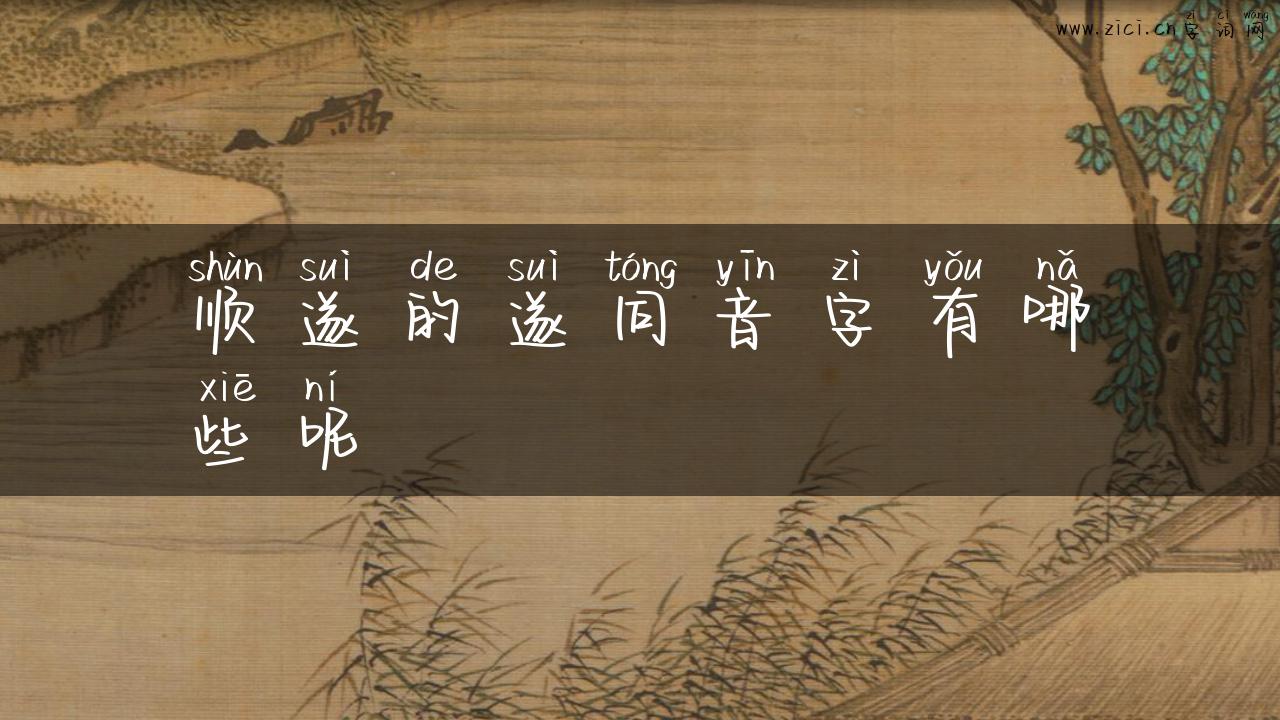 zì cí wǎng
www.zici.cn字词网
shùn suì de suì tóng yīn zì yǒu nǎ
顺遂的遂同音字有哪
xiē ní
些呢